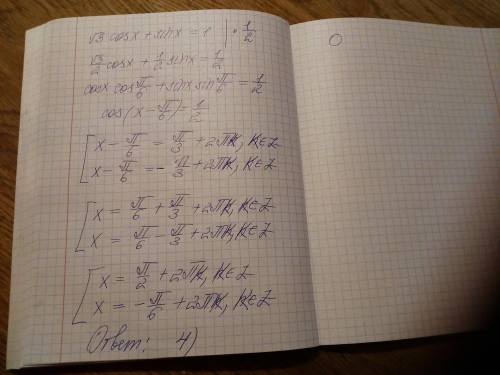 √3 cosx + sinx = 1 | · 1/2
√3/2 cosx + 1/2 sinx = 1/2
cosx cos π/6 + sinx sin π/6 = 1/2
cos(x - π/6) = 1/2
[ x - π/6 = π/3 + 2πk, k∈Z
x - π/6 = - π/3 + 2πk, k∈Z
[ x = π/6 + π/3 + 2πk, k∈Z
x = π/6 - π/3 + 2πk, k∈Z
[ x = π/2 + 2πk, k∈Z
x = - π/6 + 2πk, k∈Z
Ответ: 4)